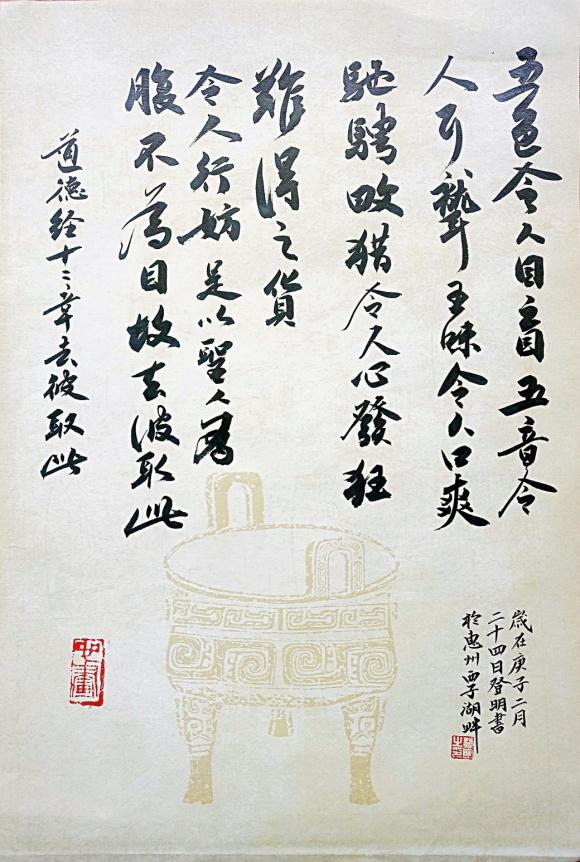 五色令人目盲五音令
人耳聾五味令人口爽
馳騁畋猎令人心發狂
難得之貨
令人行妨是以聖人为
腹不为目故去彼取此
道德经十二章去彼取此
歲在庚子二月
二十四日登明書
於惠州西子湖畔